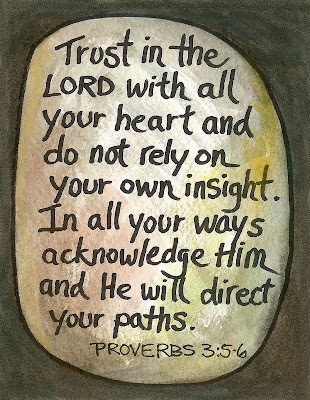 Trust in the
LORD with all
your heart and
do not rely on
your own insight.
In all your ways
acknowledge Him
and He will direct
your paths.
PROVERBS 3:5-6